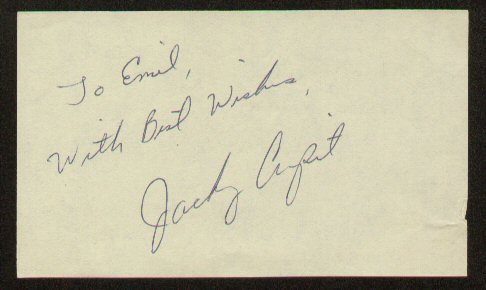 To Emil,
With Best Wishes,
Jacky Cupit